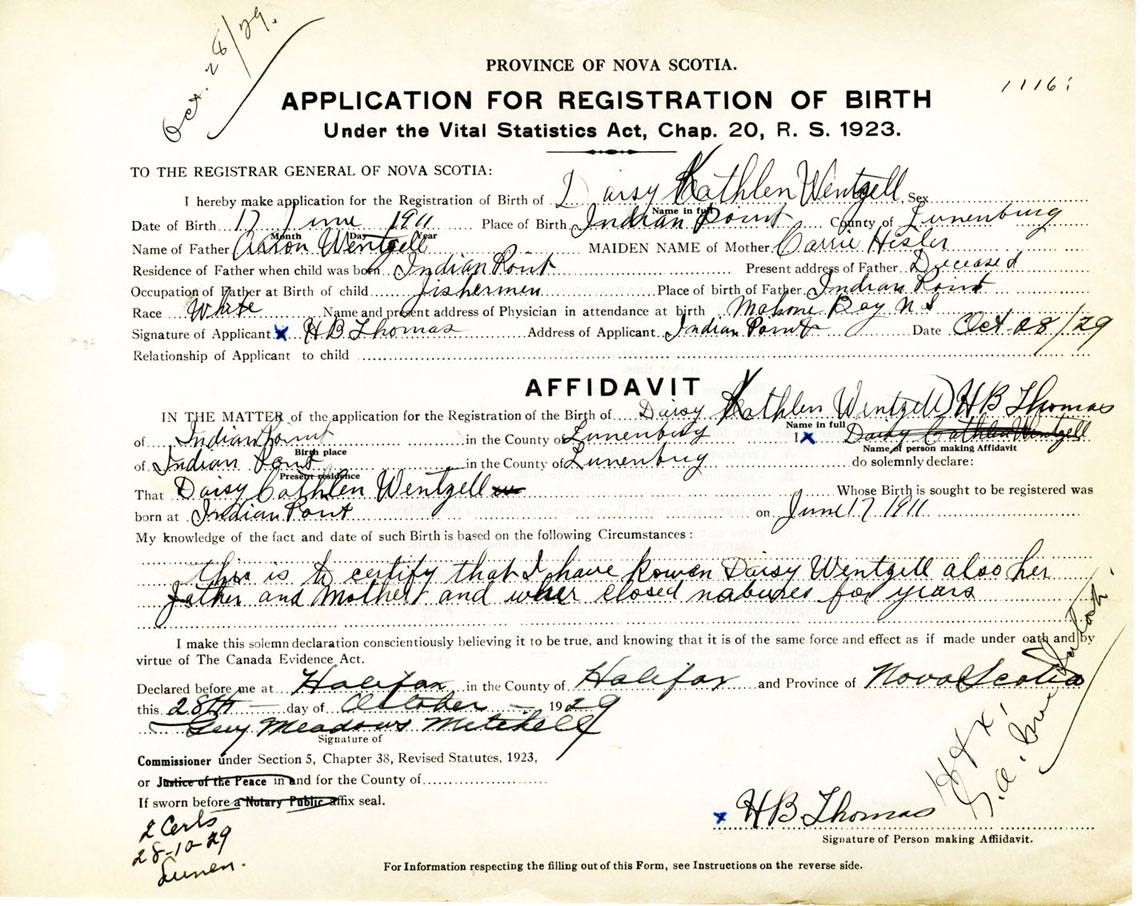 Oct. 28/29.
PROVINCE OF NOVA SCOTIA.
1116
APPLICATION FOR REGISTRATION OF BIRTH
Under the Vital Statistics Act, Chap. 20, R. S. 1923.
TO THE REGISTRAR GENERAL OF NOVA SCOTIA:
I hereby make application for the Registration of Birth of Daisy Kathlen Wentzell Sex
Name in full
Date of Birth 17 June 1911 Place of Birth Indian Point County of Lunenburg
Month Day Year
Name of Father Aaron Wentzell MAIDEN NAME of Mother Carrie Hisler
Residence of Father when child was born Indian Point Present address of Father Diceased
Occupation of Father at Birth of child fishermen Place of birth of Father Indian Point
Race White Name and present address of Physician in attendance at birth Mahone Bay N S
Signature of Applicant x H B Thomas Address of Applicant Indian Point Date Oct 28/29
Relationship of Applicant to child
AFFIDAVIT
IN THE MATTER of the application for the Registration of the Birth of Daisy Kathlen Wentzell) H B Thomas
Name in full
of Indian Point in the County of Lunenburg I x Daisy Cathlen Wentzell
Birth place Name of person making Affidavit
of Indian Point in the County of Lunenbrug do solemnly declare:
Present residence
That Daisy Cathlen Wentzell Whose Birth is sought to be registered was
born at Indian Point on June 17 1911
My knowledge of the fact and date of such Birth is based on the following Circumstances:
this is to certify that I have kowen Daisy Wentzell also her
father and mother and wher closed nabures for years
I make this solemn declaration conscientiously believing it to be true, and knowing that it is of the same force and effect as if made under oath and by
virtue of The Canada Evidence Act.
Declared before me at Halifax in the County of Halifax and Province of Nova Scotia
this 28th day of October 1929
Guy Meadows Mitchell
Signature of
Commissioner under Section 5, Chapter 38, Revised Statutes, 1923,
or Justice of the Peace in and for the County of
If sworn before a Notary Public affix seal.
2 Certs
28-10-29
Lunen.
Hfx
x H B Thomas
Signature of Person making Affidavit.
For Information respecting the filling out of this Form, see Instructions on the reverse side.